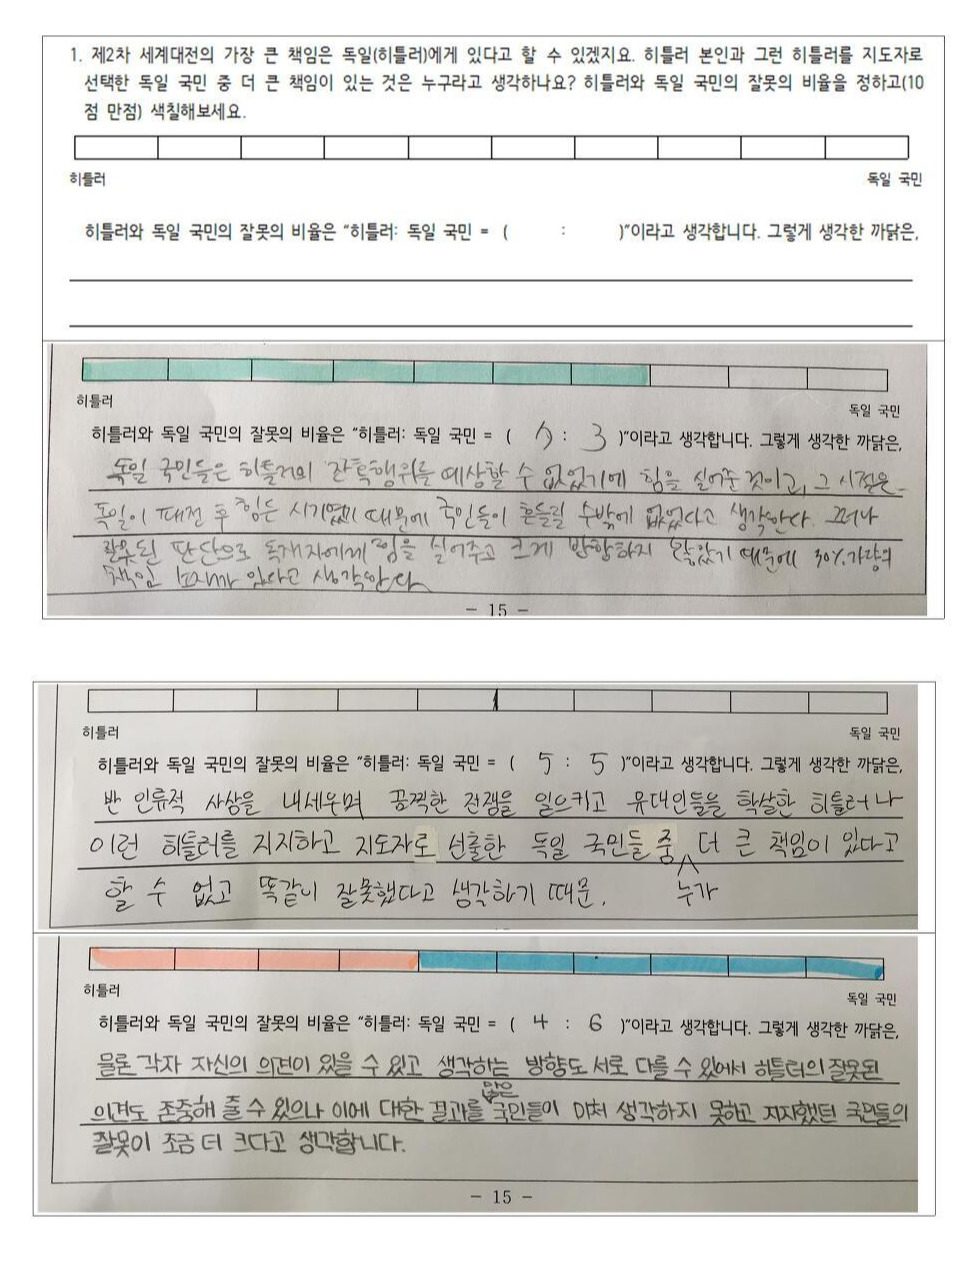 1. 제2차 세계대전의 가장 큰 책임은 독일(히틀러)에게 있다고 할 수 있겠지요. 히틀러 본인과 그런 히틀러를 지도자로
선택한 독일 국민 중 더 큰 책임이 있는 것은 누구라고 생각하나요? 히틀러와 독일 국민의 잘못의 비율을 정하고(10
점 만점) 색칠해보세요.
히틀러 독일 국민
히틀러와 독일 국민의 잘못의 비율은 "히틀러: 독일 국민 = ( : )"이라고 생각합니다. 그렇게 생각한 까닭은,
히틀러 독일 국민
히틀러와 독일 국민의 잘못의 비율은 "히틀러: 독일 국민 = ( 7 : 3 )"이라고 생각합니다. 그렇게 생각한 까닭은,
독일 국민들은 히틀러의 잔혹행위를 예상할 수 없었기에 힘을 실어준 것이고, 그 시절은
독일이 대전 후 힘든 시기였기 때문에 국민들이 흔들릴 수밖에 없었다고 생각한다. 그러나
잘못된 판단으로 독재자에게 힘을 실어주고 크게 반항하지 않았기 때문에 30%가량의
책임 있다고 생각한다
- 15 -
히틀러 독일 국민
히틀러와 독일 국민의 잘못의 비율은 "히틀러: 독일 국민 = ( 5 : 5 )"이라고 생각합니다. 그렇게 생각한 까닭은,
반 인류적 사상을 내세우며 끔찍한 전쟁을 일으키고 유대인들을 학살한 히틀러나
이런 히틀러를 지지하고 지도자로 선출한 독일 국민들 중 누가 더 큰 책임이 있다고
할 수 없고 똑같이 잘못했다고 생각하기 때문.
히틀러 독일 국민
히틀러와 독일 국민의 잘못의 비율은 "히틀러: 독일 국민 = ( 4 : 6 )"이라고 생각합니다. 그렇게 생각한 까닭은,
물론 각자 자신의 의견이 있을 수 있고 생각하는 방향도 서로 다를 수 있어서 히틀러의 잘못된
의견도 존중해 줄 수 있으나 이에 대한 결과를 많은 국민들이 미처 생각하지 못하고 지지했던 국민들의
잘못이 조금 더 크다고 생각합니다.
- 15 -